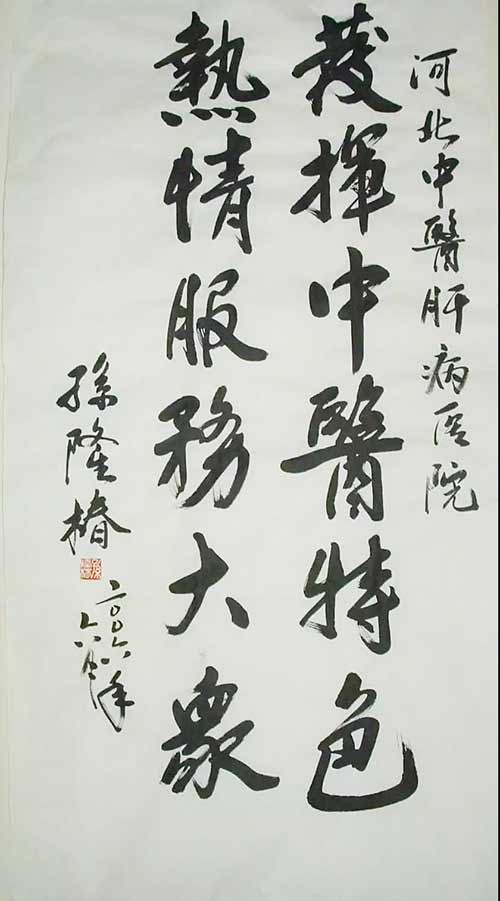 河北中醫肝病医院
發揮中醫特色
熱情服務大衆
孫隆椿
二〇〇六年
六月